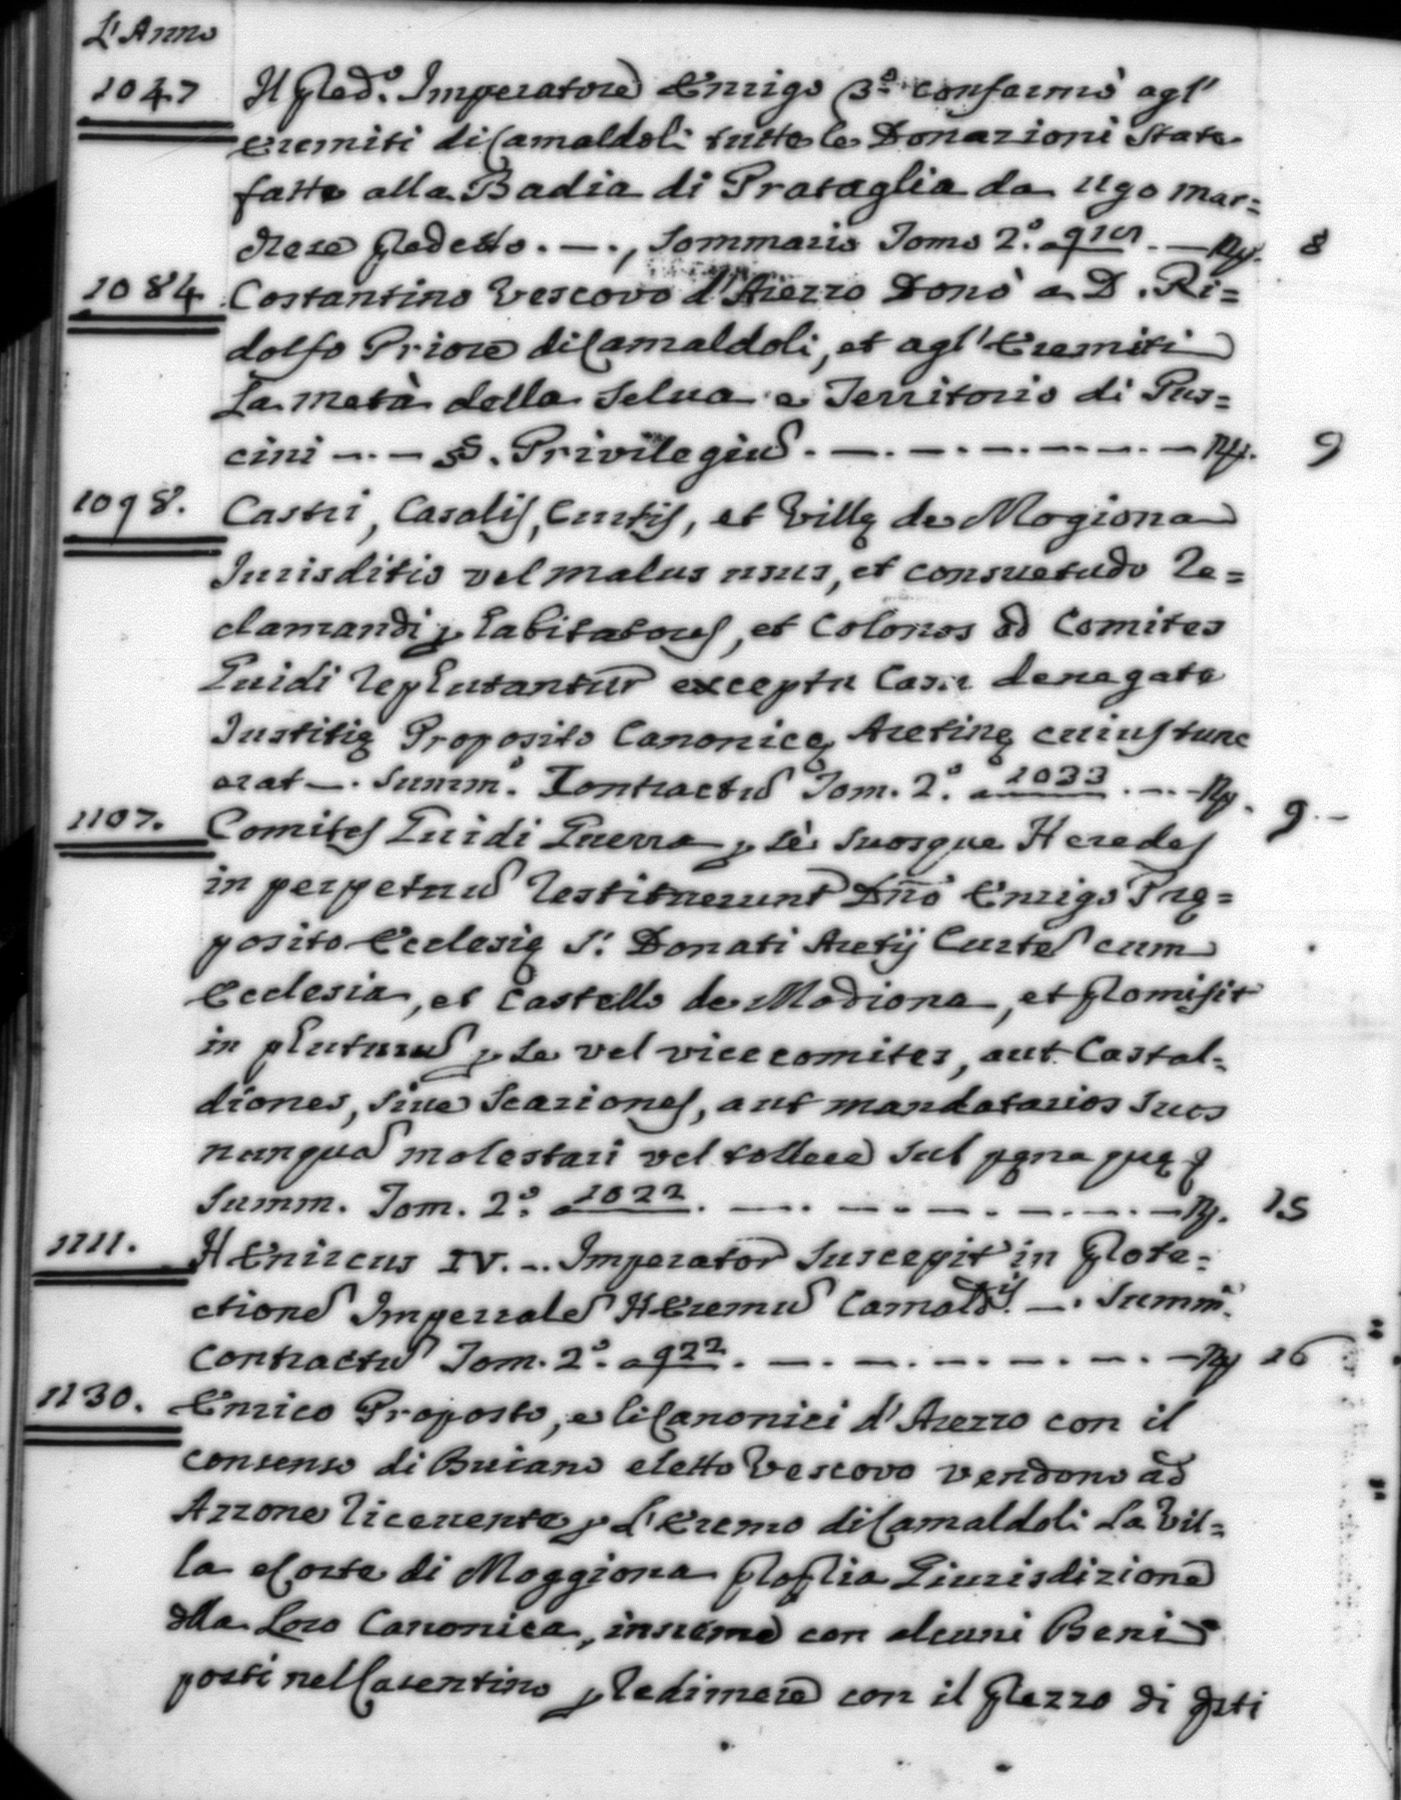 L'Anno
1047 Il Pred.º Imperatore Enrigo 3º confermò agl'
Eremiti di Camaldoli tutte le Donazioni state
fatte alla Badia di Prataglia da Ugo mar=
chese predetto. —., Sommario Tomo 2.º a 915. — Pag. 8
1084 Costantino Vescovo d'Arezzo Donò a D. Ri=
dolfo Priore di Camaldoli, et agl' Eremiti
La metà della Selva e Territorio di Pus=
cini —.— SS. Privilegiu. —.—.—.—.—.— Pag. 9
1098. Castri, Casalis, Curtis, et Villę de Mogiona
Jurisditio vel malus usus, et consuetudo re=
clamandi p habitatores, et Colonos ad Comites
Guidi rephutantur exceptu Casu denegate
Justitię Proposito Canonicę Aretinę cuius tunc
erat —. Summ.º Contractuu Tom. 2.º a 1033. —.. Pag. 9.-
1107. Comites Guidi Guerra p sè suosque Heredes
in perpetuu restituerunt Dño Enrigo Prę=
posito Ecclesię S. Donati Aretij Curte cum
Ecclesia, et Castello de Modiona, et promisit
in phuturu p se vel vicecomites, aut Castal=
diones, sive Scariones, aut mandatarios suos
nunqua molestari vel tollere sub pęna quę
Summ. Tom. 2.º a 1022. —.—.—.—.—.— Pag. 15
1111. HEnricus IV. -. Imperator suscepit in Prote=
ctione Imperiale HEremu Camald. —. Summ.
Contractuu Tom. 2.º a 922. —.—.—.—.— Pag 16
1130. Enrico Proposto, e li Canonici d'Arezzo con il
consenso di Buiano eletto Vescovo vendono ad
Azzone ricevente p L'Eremo di Camaldoli La Vil=
la e Corte di Moggiona propria Giurisdizione
dlla Loro Canonica, insieme con alcuni Beni
posti nel Casentino p redimere con il prezzo di qsti